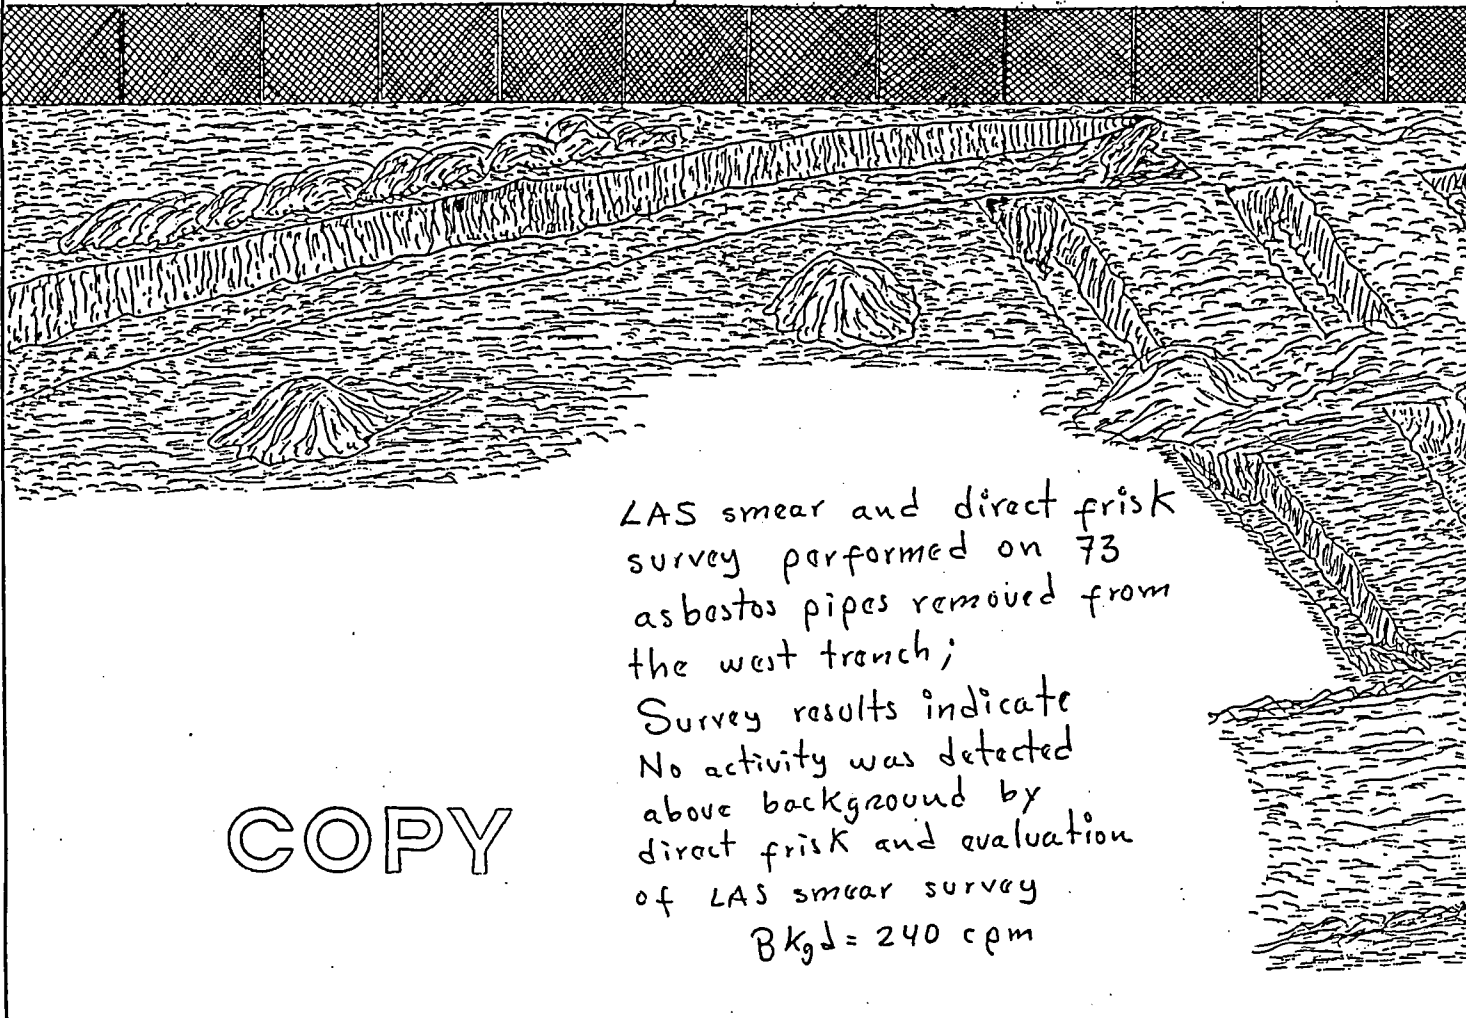 LAS smear and direct frisk
survey performed on 73
asbestos pipes removed from
the west trench;
Survey results indicate
No activity was detected
above background by
direct frisk and evaluation
of LAS smear survey
Bkgd = 240 cpm
COPY